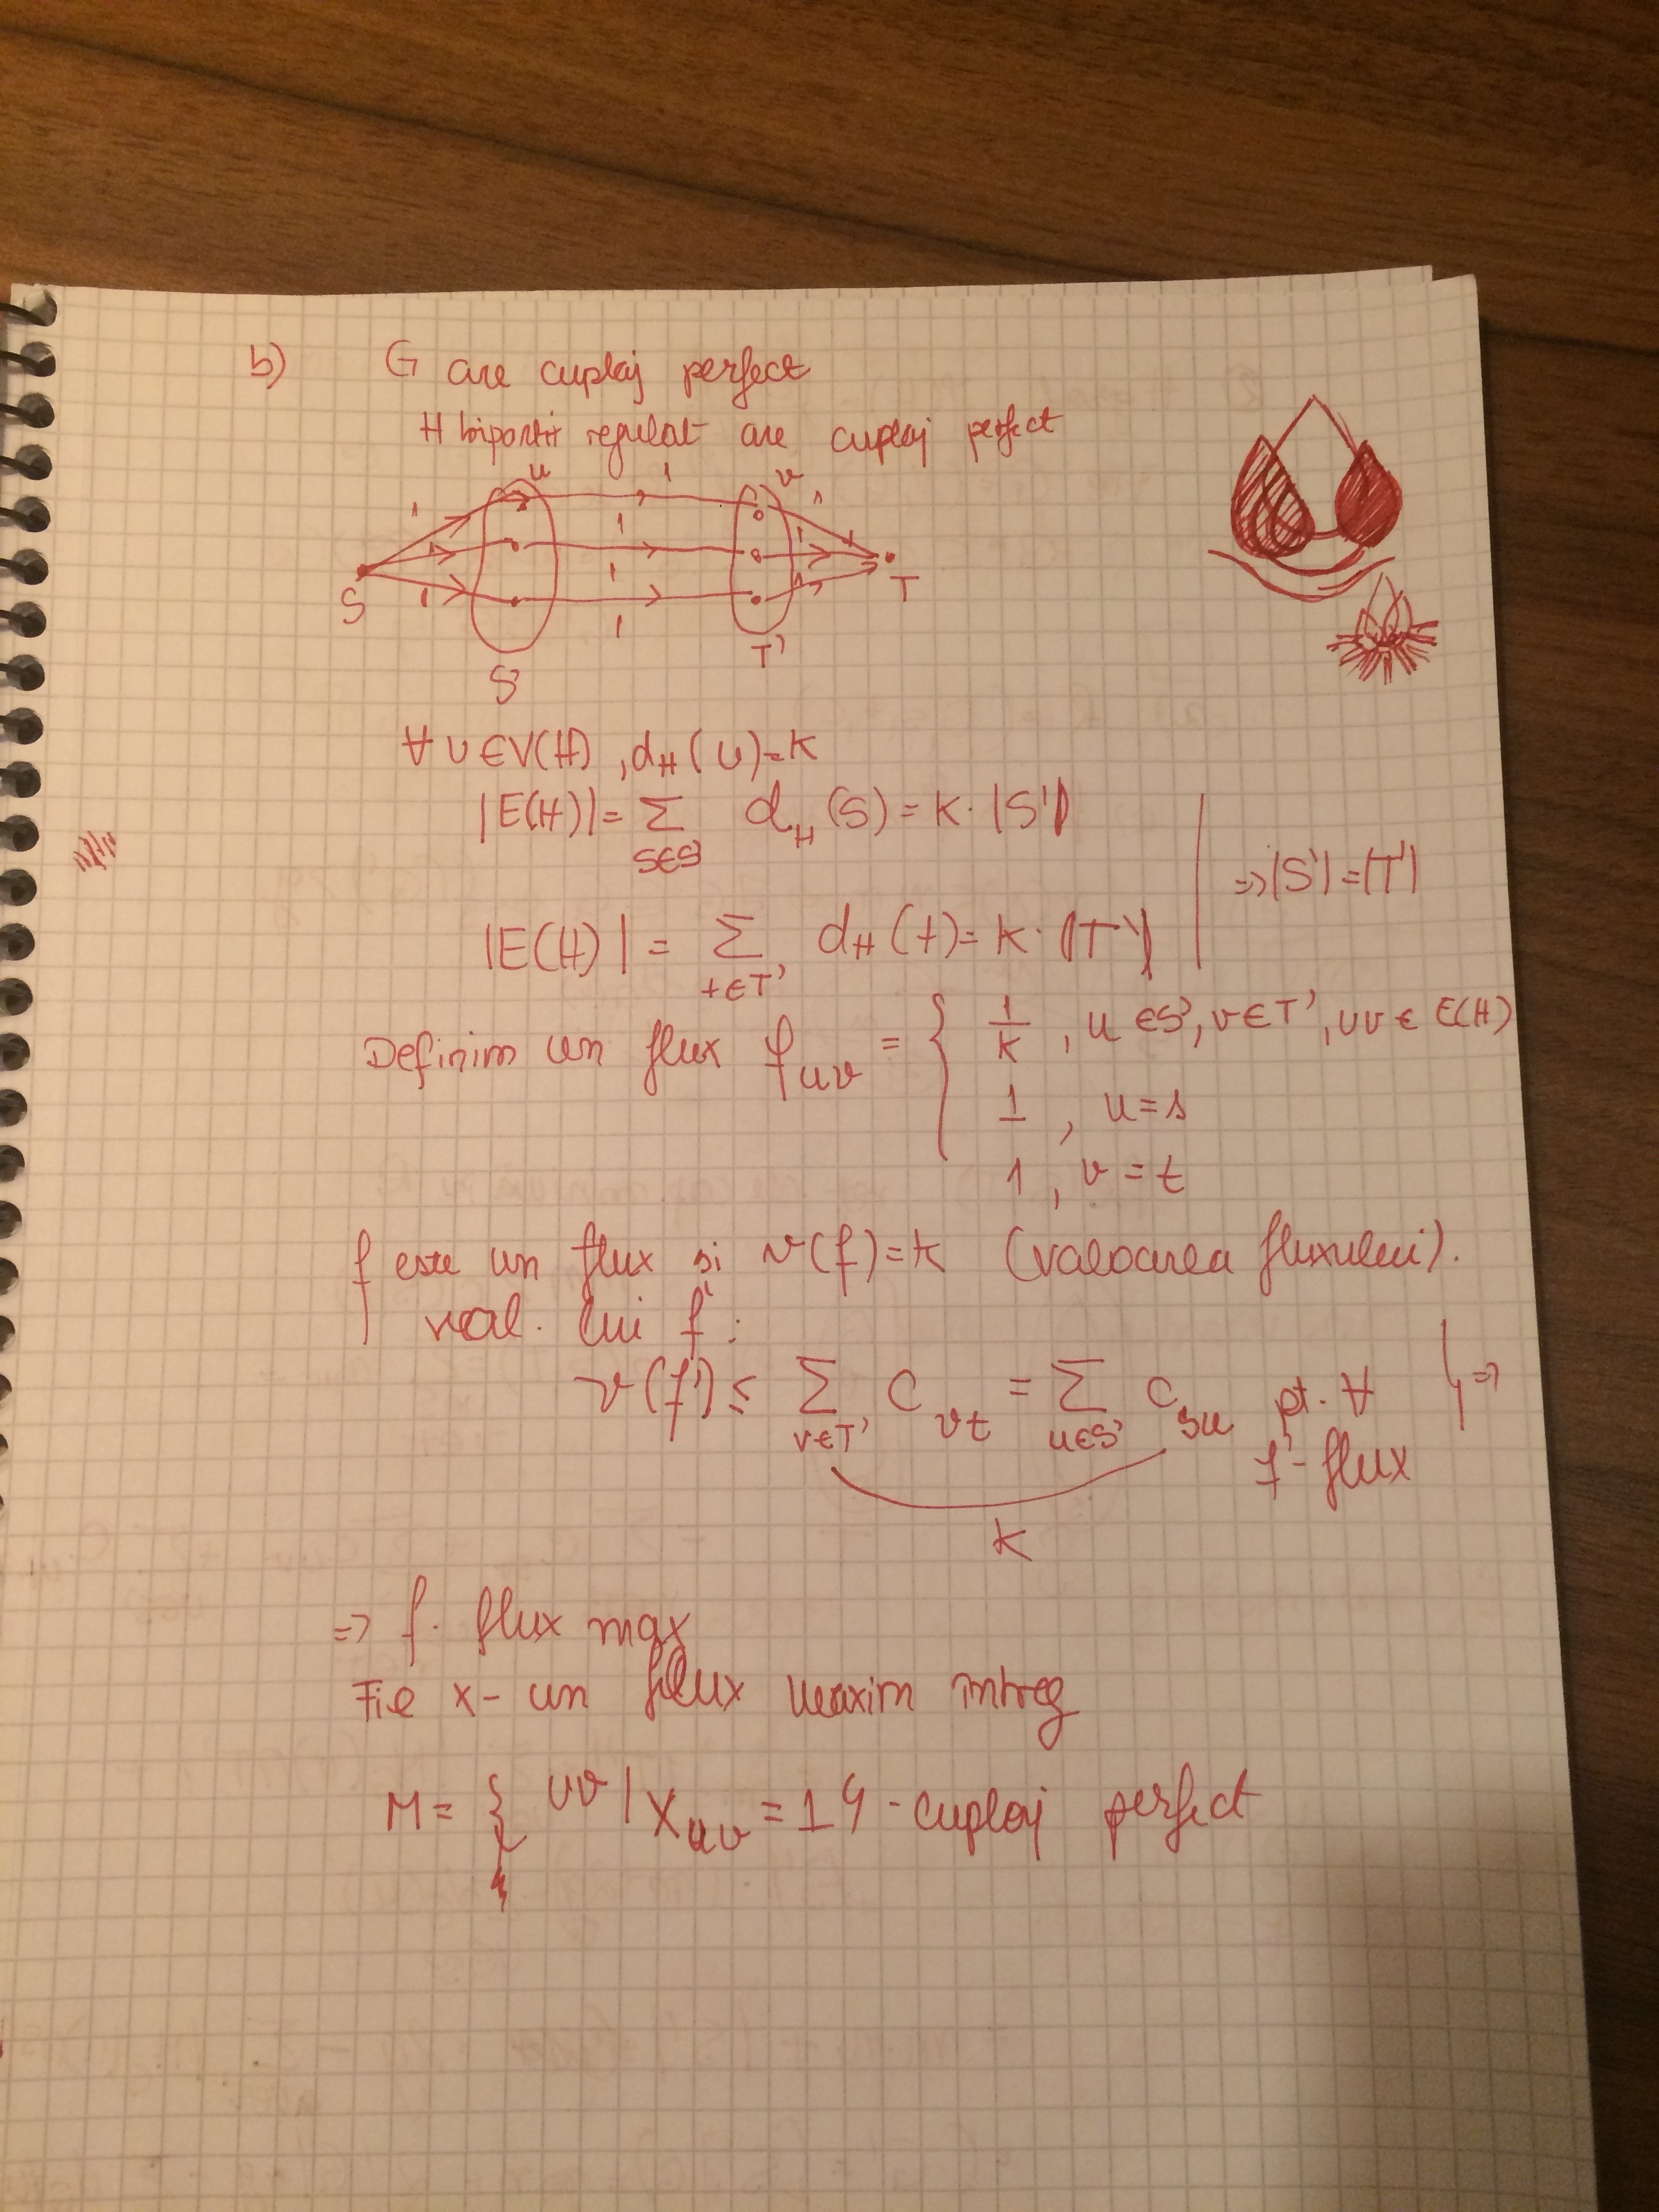 b) G are cuplaj perfect
H bipartit regulat are cuplaj perfect
u 1 v
1 1 1 1 1 1 1 1
S T
S' T'
∀ u ∈ V(H), d_H(u) = k
|E(H)| = Σ_{s∈S'} d_H(s) = k · |S'|
⇒ |S'| = |T'|
|E(H)| = Σ_{t∈T'} d_H(t) = k · |T'|
Definim un flux f_{uv} = { 1/k , u ∈ S', v ∈ T', uv ∈ E(H)
1 , u = s
1 , v = t
f este un flux si v(f) = k (valoarea fluxului).
val. lui f' :
v(f') ≤ Σ_{v∈T'} C_{vt} = Σ_{u∈S'} C_{su} pt. ∀ } ⇒
f' - flux
k
⇒ f. flux max
Fie x - un flux maxim intreg
M = { uv | x_{uv} = 1 } - cuplaj perfect